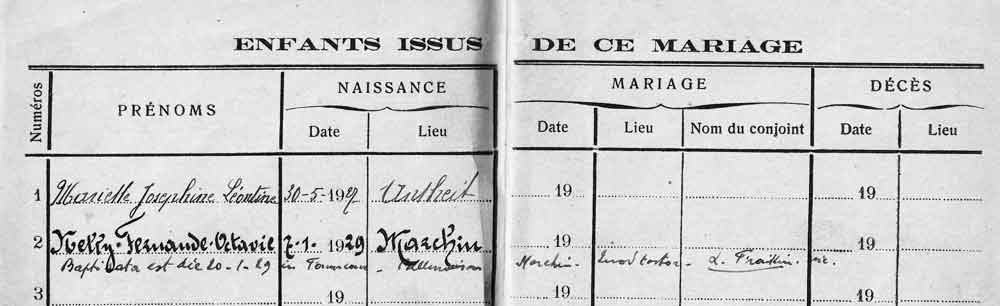 ENFANTS ISSUS DE CE MARIAGE
Numéros PRÉNOMS NAISSANCE MARIAGE DÉCÈS
Date Lieu Date Lieu Nom du conjoint Date Lieu
1 Marielle Josephine Léontine 30-5-1927 Antheit 19 19
2 Nelly-Fernande-Octavie 7-1-1929 Marchin 19 19
Baptizata est die 20-1-29 in Marchin.
3 19 19 19